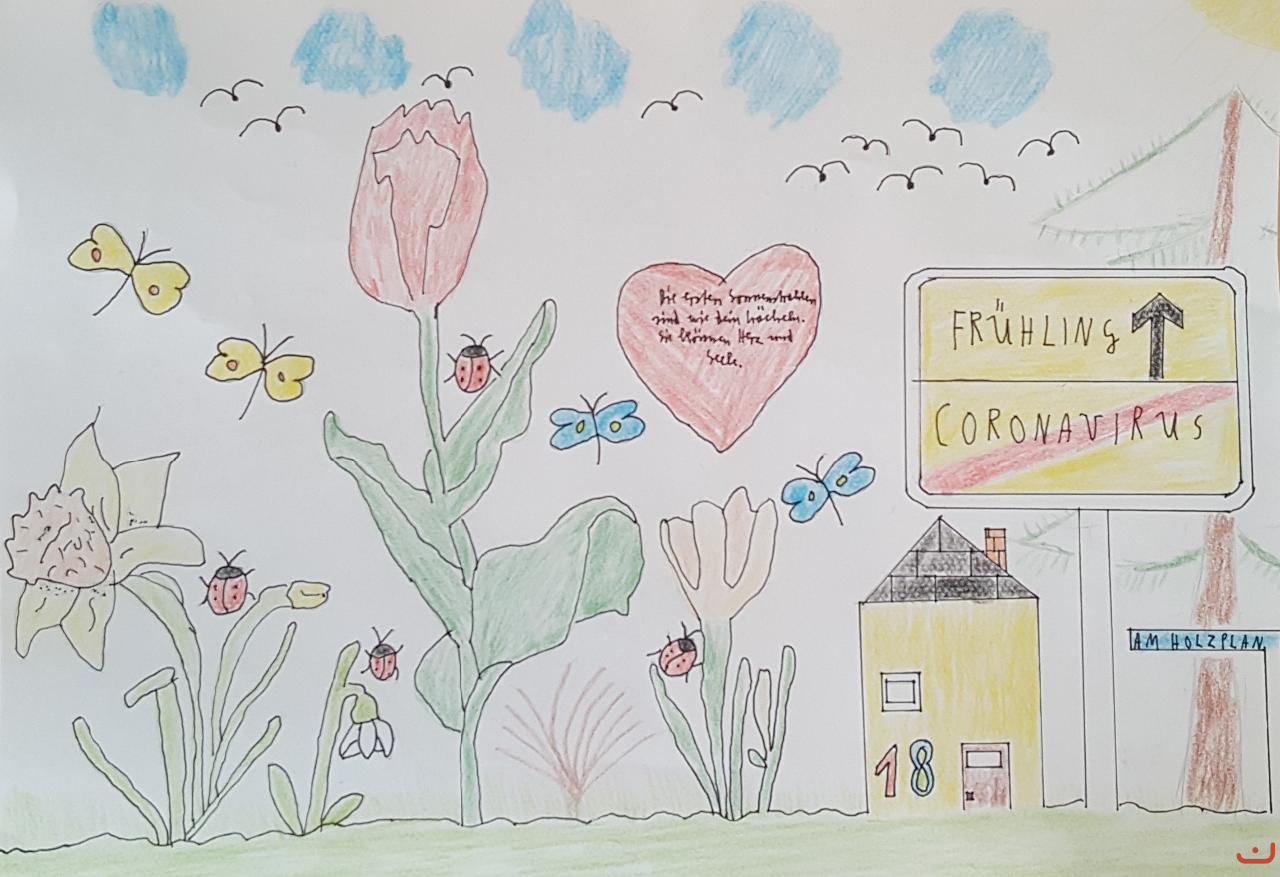 Die ersten Sonnenstrahlen
sind wie dein Lächeln.
Sie können Herz und
Seele.
FRÜHLING
CORONAVIRUS
AM HOLZPLAN
18